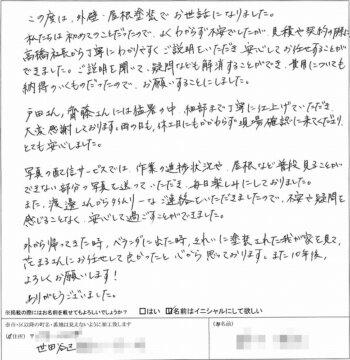 この度は、外壁・屋根塗装でお世話になりました。
私たちは初めてのことだったので、よくわからず不安でしたが、見積や契約の際に
高橋社長から丁寧にわかりやすくご説明をいただき、安心してお任せすることが
できました。ご説明を聞いて、疑問なども解消することができ、費用についても
納得のいくものだったので、お願いすることにしました。
戸田さん、齊藤さんには猛暑の中、細部まで丁寧に仕上げていただき、
大変感謝しております。雨の日も、休工日にもかかわらず現場確認に来てくださり、
とても安心しました。
写真の配信サービスでは、作業の進捗状況や、屋根など普段見ることが
できない部分の写真も送っていただき、毎日楽しみにしておりました。
また、渡邊さんからタイムリーなご連絡をいただきましたので、不安や疑問を
感じることなく、安心して過ごすことができました。
外から帰ってきた時、ベランダに出た時、きれいに塗装された我が家を見て、
花まるさんにお任せして良かったと心から思っております。また10年後、
よろしくお願いします!
ありがとうございました。
※掲載の際にはお名前を載せてもよろしいでしょうか? □はい ☑名前はイニシャルにして欲しい
※市・区以降の町名・番地は見えないように加工致します
(ご住所) 〒
世田谷区
(お名前)